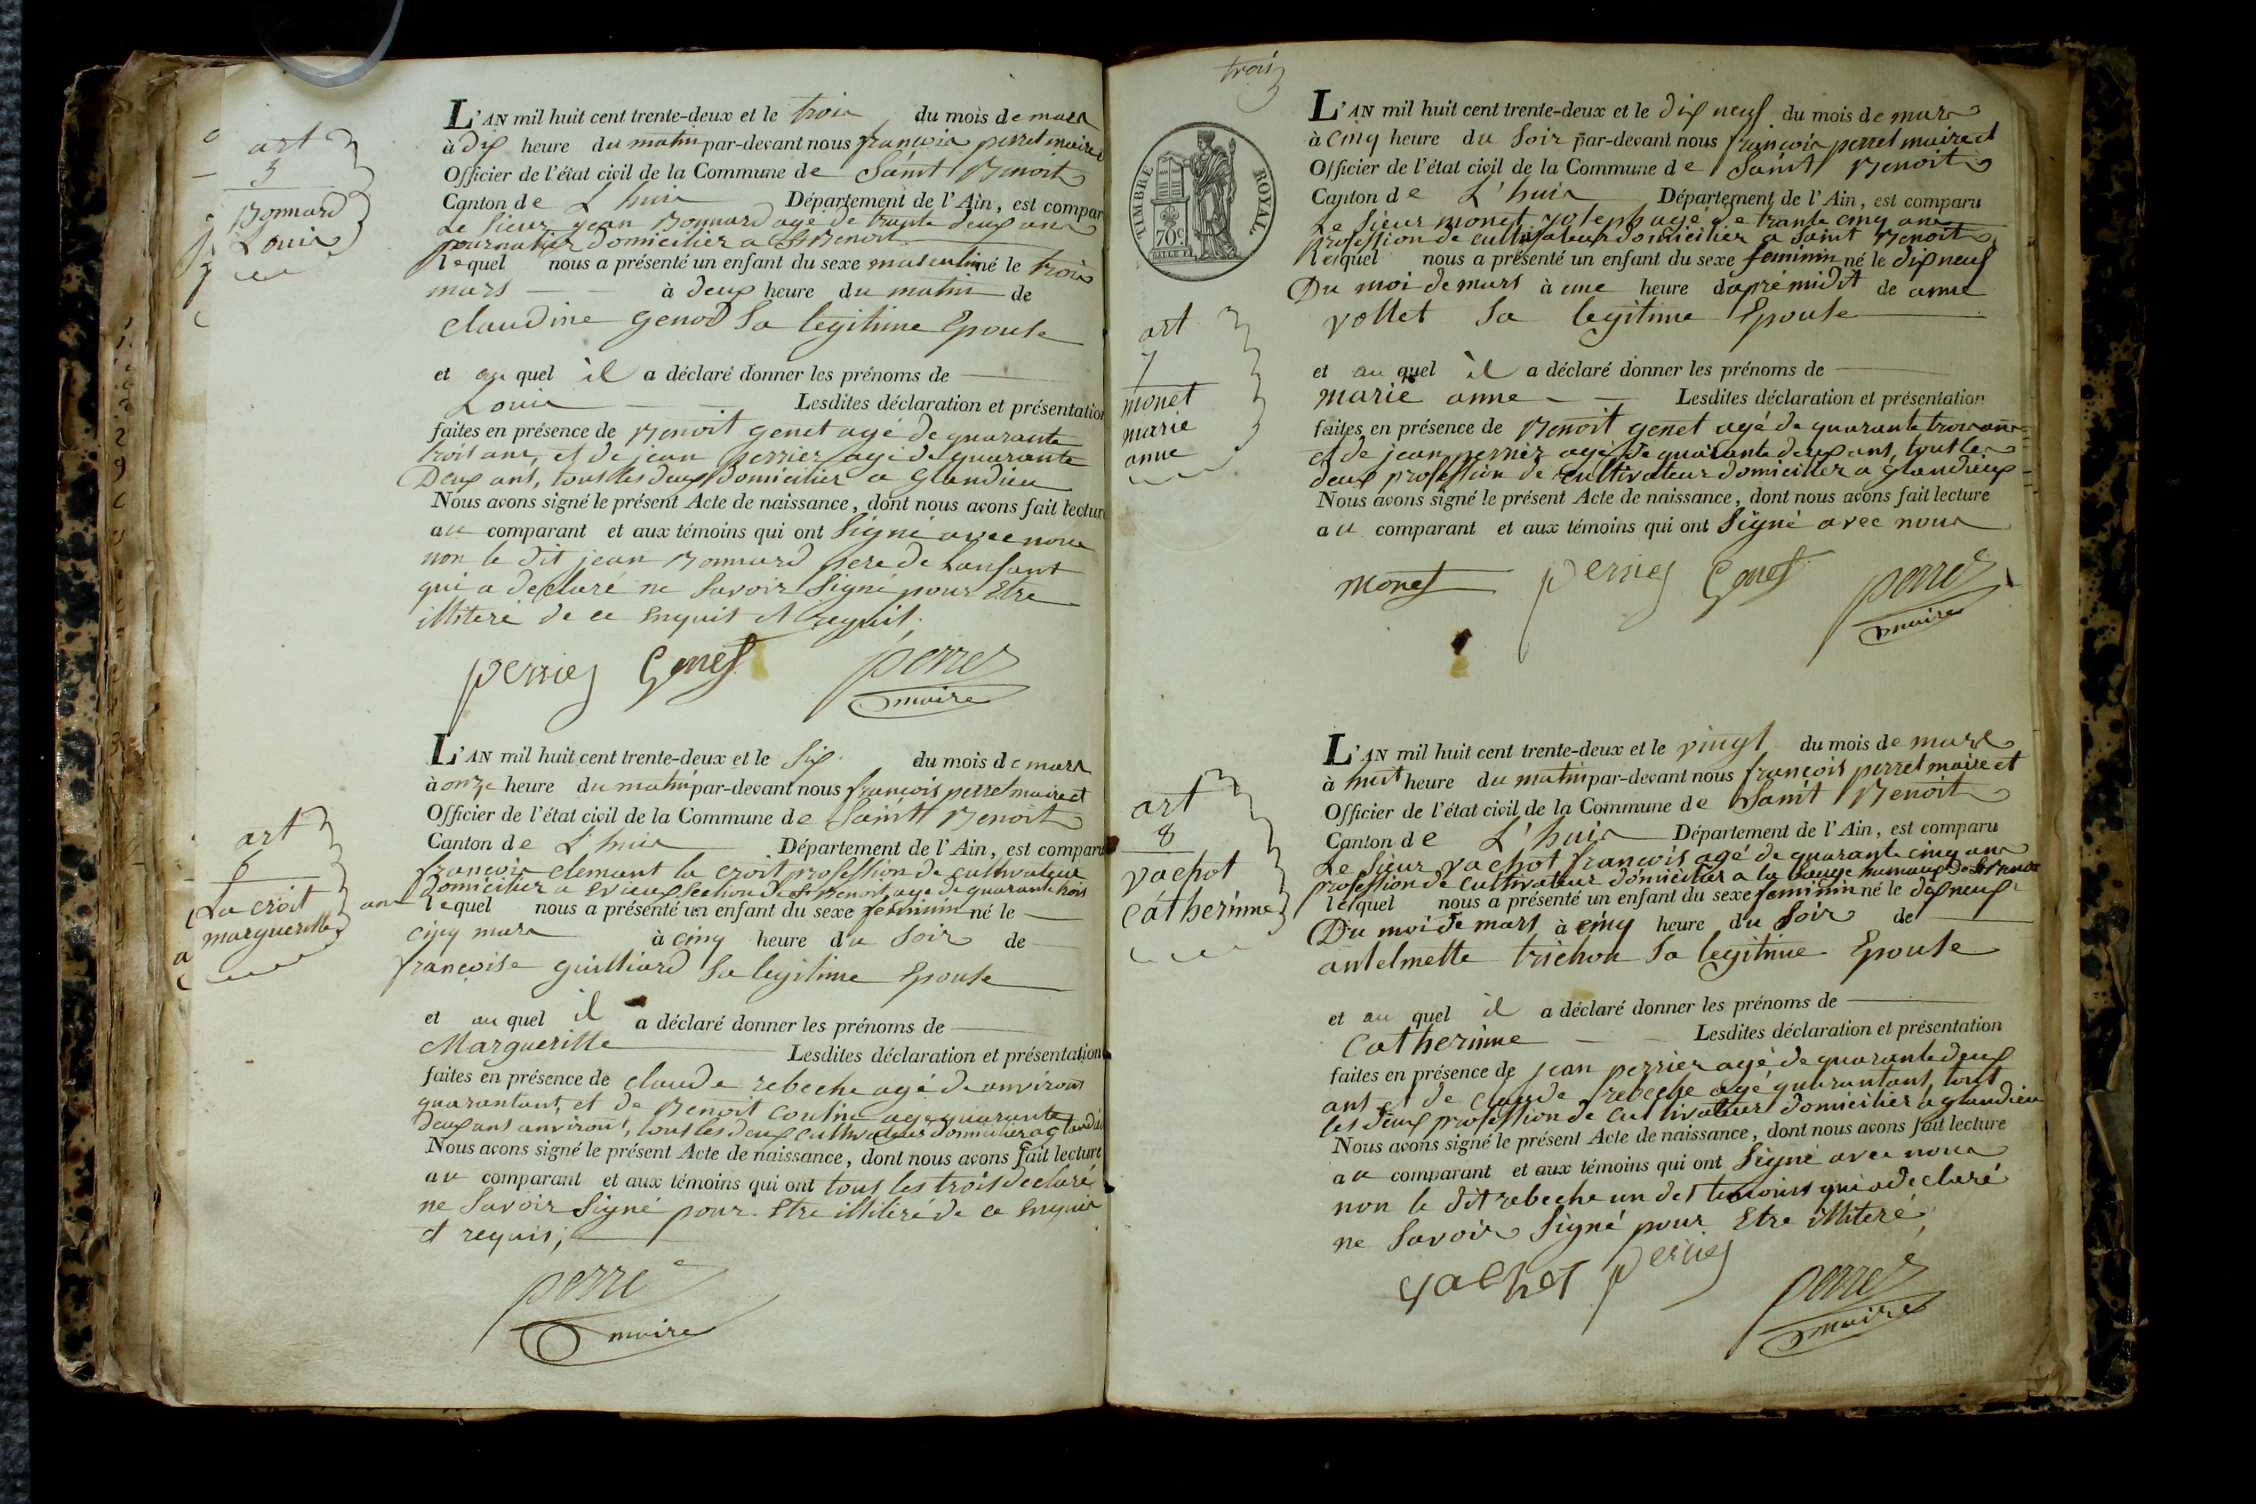 art
5
Bonnard
Louis
L'AN mil huit cent trente-deux et le trois du mois de mars
à dix heure du matin par-devant nous françois perret maire et
Officier de l'état civil de la Commune de Saint Benoit
Canton de L'huis Département de l'Ain, est comparu
Le Sieur jean Bonnard agé de trante deux ans
journalier domicilier a St Benoit
lequel nous a présenté un enfant du sexe masculin né le trois
mars à deux heure du matin de
claudine genod Sa legitime Epouse
et au quel il a déclaré donner les prénoms de
Louis Lesdites déclaration et présentation
faites en présence de Benoit genet agé de quarante
trois ans, et de jean perrier agé de quarante
Deux ans, tous les deux domicilier a glandieu
Nous avons signé le présent Acte de naissance, dont nous avons fait lecture
au comparant et aux témoins qui ont Signé avec nous
non le dit jean Bonnard pere de Lanfant
qui a declaré ne Savoir Signé pour Etre
illiteré de ce Enquit et requit.
perrier Genet perret
maire
art
6
La croit
margueritte
L'AN mil huit cent trente-deux et le Six du mois de mars
à onze heure du matin par-devant nous françois perret maire et
Officier de l'état civil de la Commune de Saint Benoit
Canton de L'huis Département de l'Ain, est comparu
françois clemant la croit profession de cultivateur
Domicilier a Evieux Section de St Benoit agé de quarante trois
ans lequel nous a présenté un enfant du sexe feminin né le
cinq mars à cinq heure du Soir de
françoise guilliard Sa legitime Epouse
et au quel il a déclaré donner les prénoms de
Margueritte Lesdites déclaration et présentation
faites en présence de claude rebeche agé de anvirons
quarantans, et de Benoit coutin agé quarante
deux ans anvirons, tous les deux cultivateur domicilier a glandieu
Nous avons signé le présent Acte de naissance, dont nous avons fait lecture
au comparant et aux témoins qui ont tous les trois declaré
ne Savoir Signé pour Etre illiteré de ce Enquis
et requis;
perret
maire
trois
TIMBRE ROYAL
70c
L'AN mil huit cent trente-deux et le dix neuf du mois de mars
à cinq heure du Soir par-devant nous françois perret maire et
Officier de l'état civil de la Commune de Saint Benoit
Canton de L'huis Département de l'Ain, est comparu
Le Sieur monet joseph agé de trante cinq ans
profession de cultivateur domicilier a Saint Benoit
lequel nous a présenté un enfant du sexe feminin né le dix neuf
Du moi de mars à une heure daprémidit de anne
vollet Sa legitime Epouse
art
7
monet
marie
anne
et au quel il a déclaré donner les prénoms de
marie anne Lesdites déclaration et présentation
faites en présence de Benoit genet agé de quarante trois ans
et de jean perrier agé de quarante deux ans, tous les
deux profession de cultivateur domicilier a glandieux
Nous avons signé le présent Acte de naissance, dont nous avons fait lecture
au comparant et aux témoins qui ont Signé avec nous
monet perrier Genet perret
maire
art
8
vachot
catherinne
L'AN mil huit cent trente-deux et le vingt du mois de mars
à huit heure du matin par-devant nous françois perret maire et
Officier de l'état civil de la Commune de Saint Benoit
Canton de L'huis Département de l'Ain, est comparu
Le Sieur vachot françois agé de quarante cinq ans
profession de cultivateur domicilier a la hameau de St Benoit
lequel nous a présenté un enfant du sexe feminin né le dix neuf
Du moi de mars à cinq heure du Soir de
antelmette trichon Sa legitime Epouse
et au quel il a déclaré donner les prénoms de
Catherinne Lesdites déclaration et présentation
faites en présence de jean perrier agé de quarante deux
ans et de claude rebeche agé quarantans, tous
les deux profession de cultivateur domicilier a glandieu
Nous avons signé le présent Acte de naissance, dont nous avons fait lecture
au comparant et aux témoins qui ont Signé avec nous
non le dit rebeche un des temoins qui a declaré
ne Savoir Signé pour Etre illiteré,
vachot perrier perret
maire